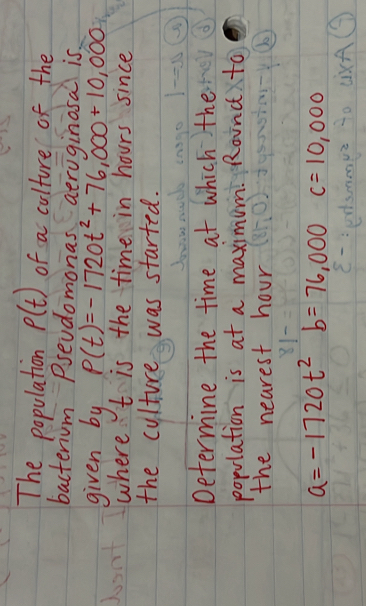 The population P(t) of a culture of the
bacterium Pseudomonas aeruginosa is
given by P(t)=-1720t²+76,000+10,000
where t is the time in hours since
the culture was started.
Determine the time at which the
population is at a maximum. Round to
the nearest hour
a=-1720t² b=76,000 c=10,000